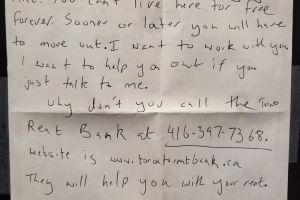 You can't live here for free
forever. Sooner or later you will have
to move out. I want to work with you
I want to help you out if you
just talk to me.
why don't you call the Toronto
Rent Bank at 416-397-7368.
website is www.torontorentbank.ca
They will help you with your rent.